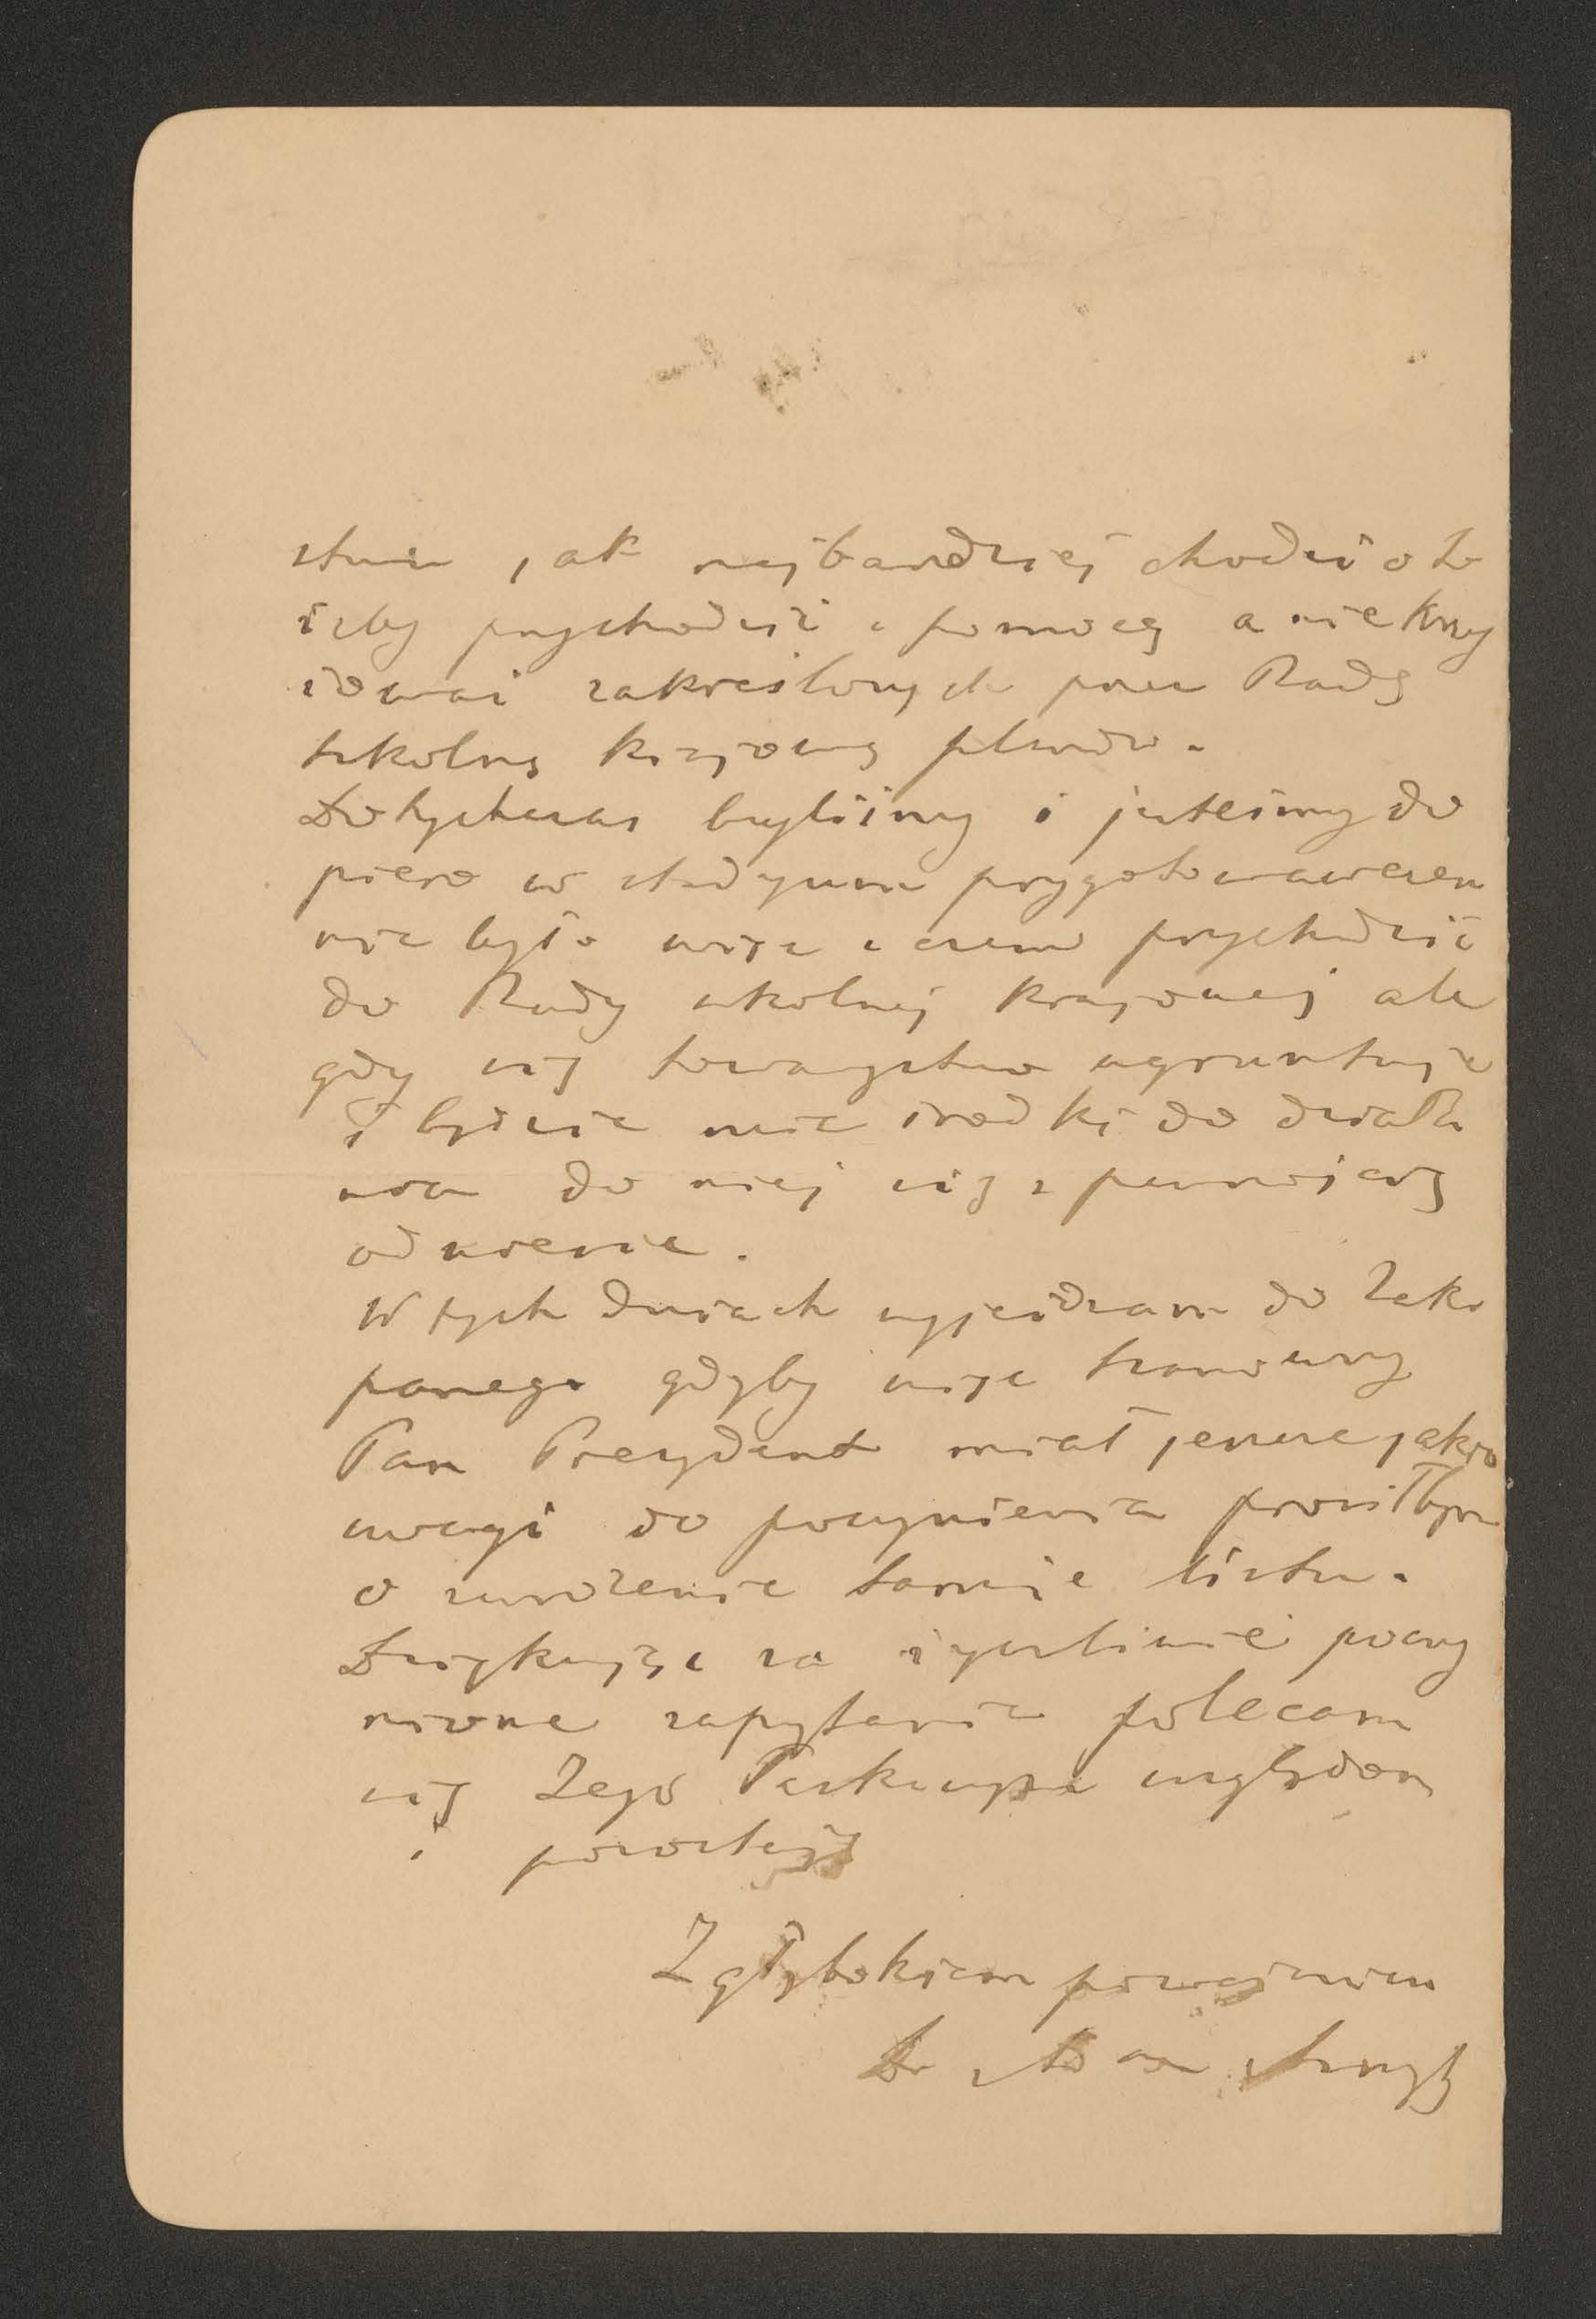 stwu jak najbardziej chodzi o to
iżby przychodzić z pomocą a nie krzy
żować zakreślonych przez Radę
szkolną krajową planów.
Dotychczas byliśmy i jesteśmy do
piero w stadyum przygotowawczem
nie było więc z czem przychodzić
do Rady szkolnej krajowej ale
gdy się towarzystwo ugruntuje
i będzie mieć środki do działa
nia do niej się z pewnością
odniesie.
W tych dniach wyjeżdżam do Zako
panego gdyby więc szanowny
Pan Prezydent miał jeszcze jakie
uwagi do poczynienia prosiłbym
o zwrócenie tamże listu.
Dziękując za życzliwie poczy
nione zapytania polecam
się Jego łaskawym względom
i pozostaję
Z głębokiem poważaniem
Dr